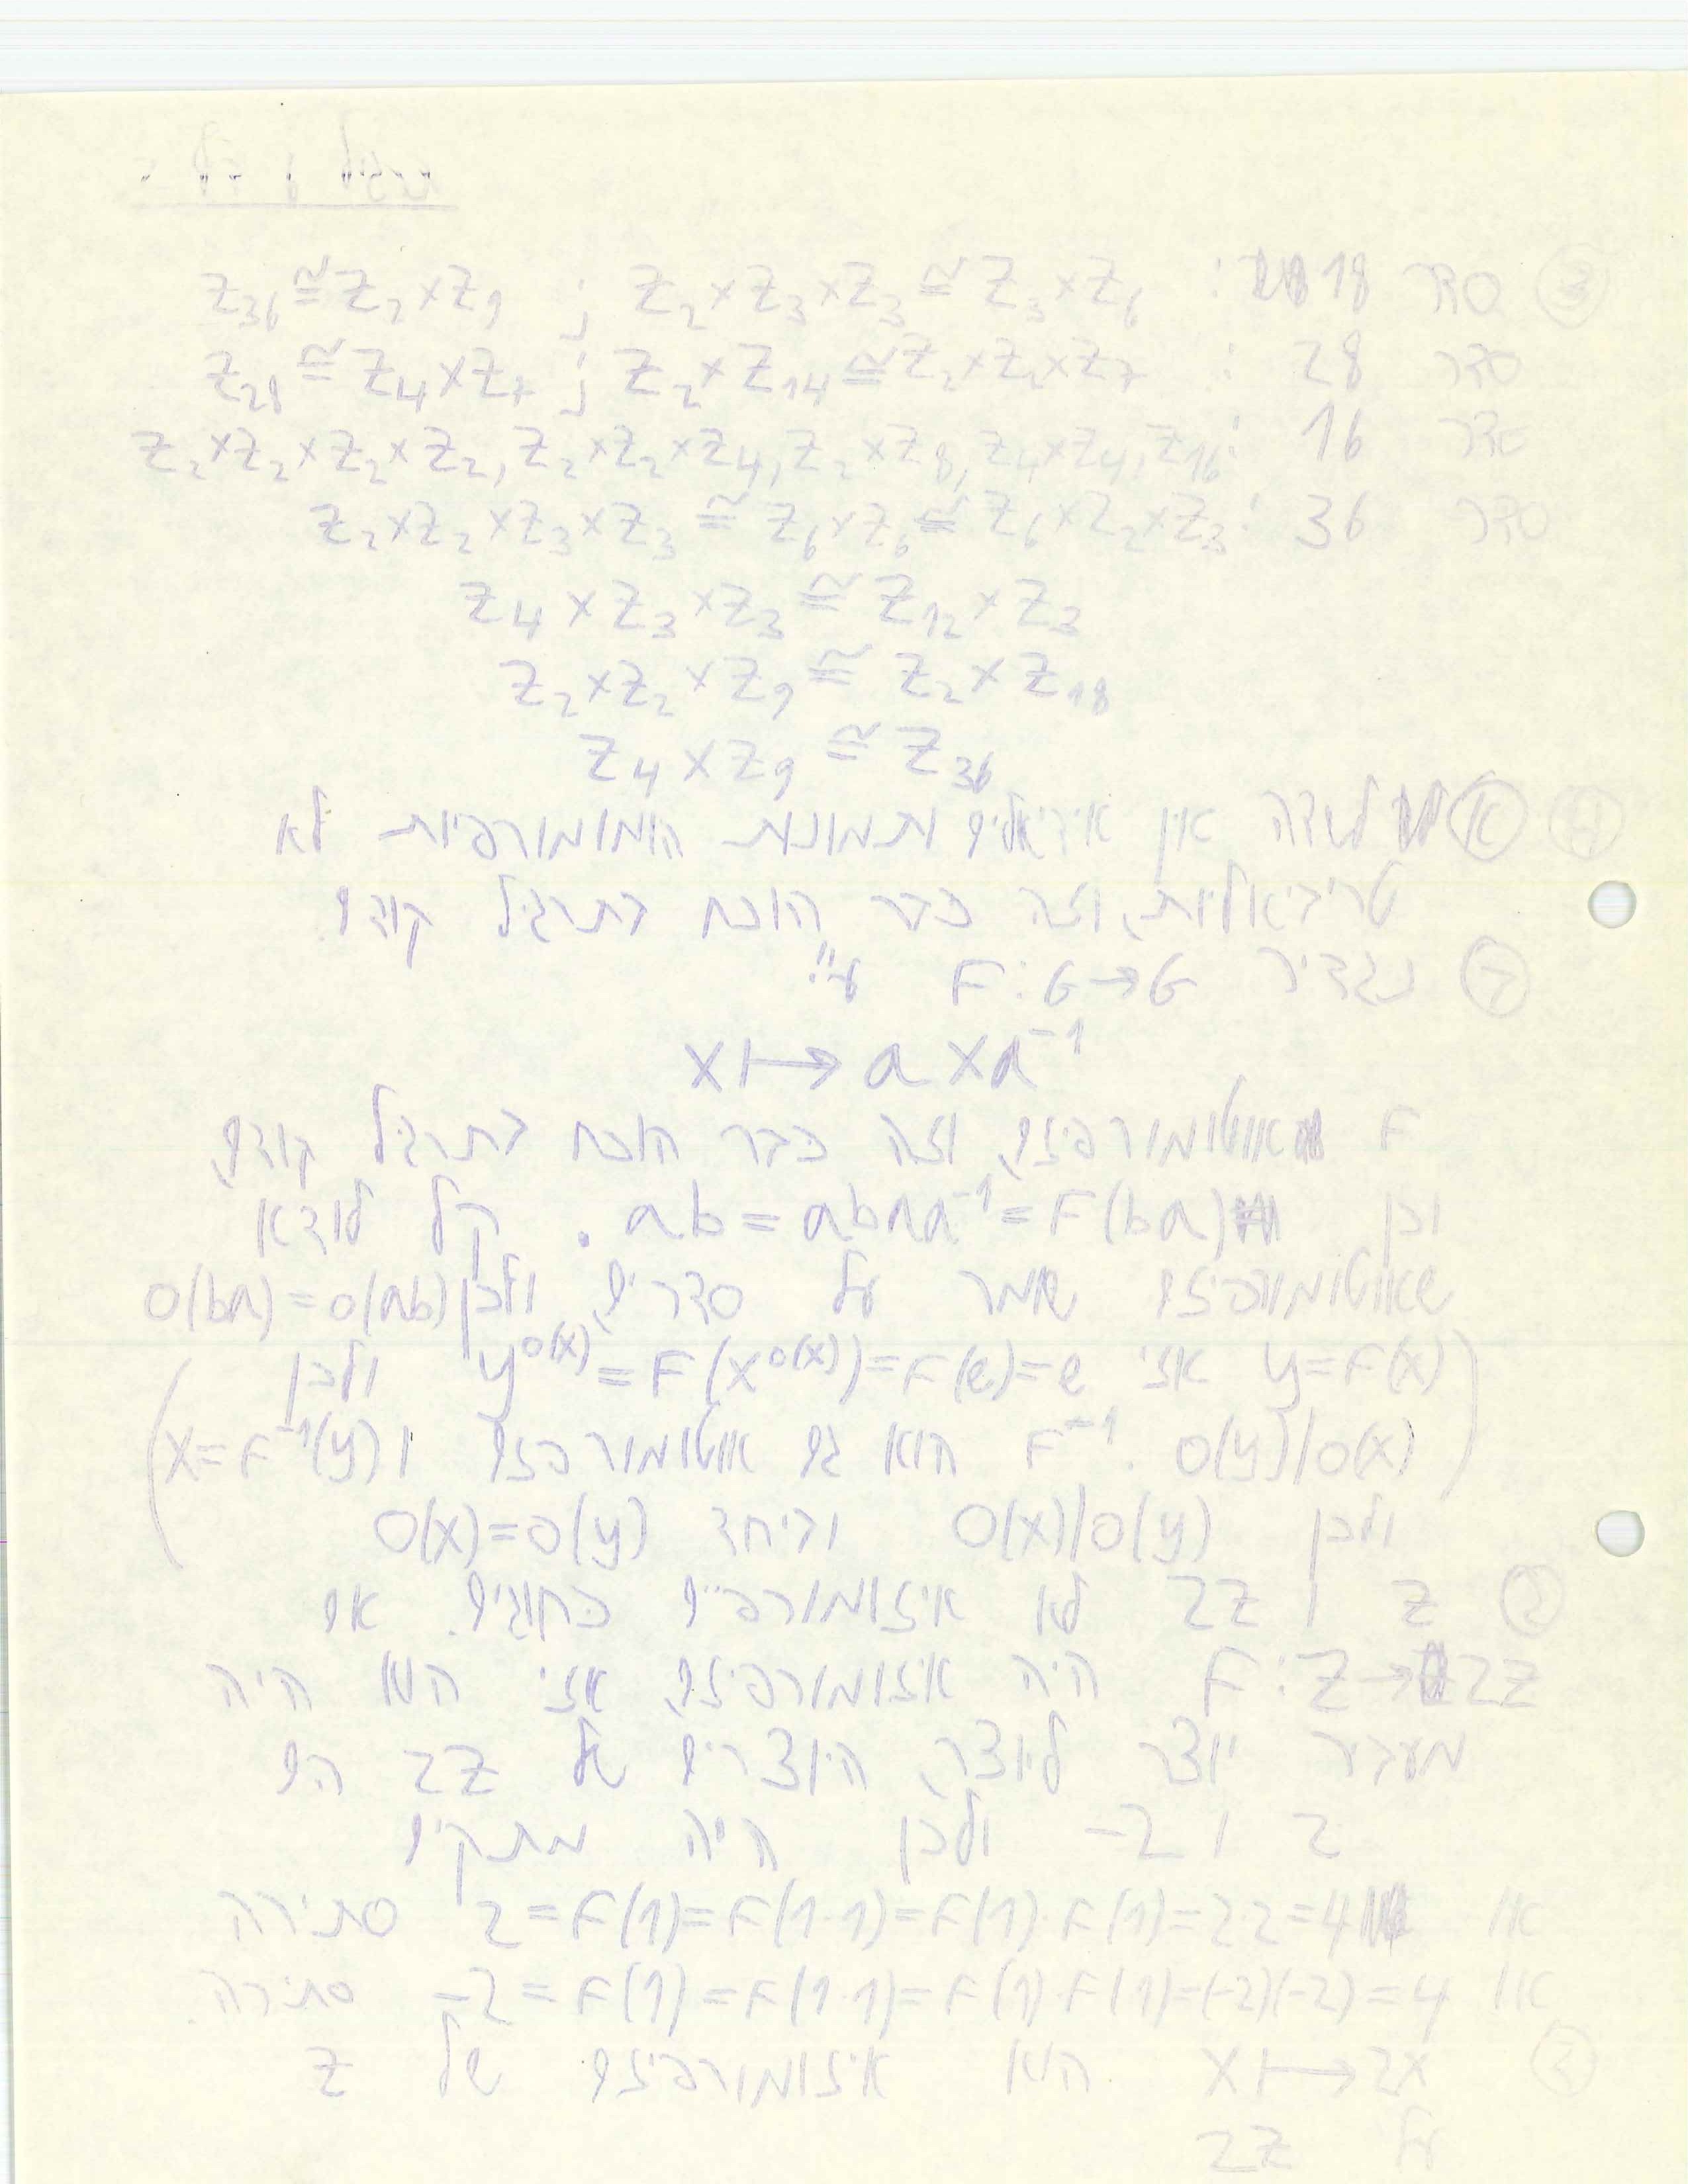 ③ סדר 18 : Z₂×Z₃×Z₃ ≅ Z₃×Z₆ ; Z₃₆ ≅ Z₂×Z₉
סדר 28 : Z₂×Z₁₄ ≅ Z₂×Z₂×Z₇ ; Z₂₈ ≅ Z₄×Z₇
סדר 16 : Z₂×Z₂×Z₂×Z₂, Z₂×Z₂×Z₄, Z₂×Z₈, Z₄×Z₄, Z₁₆
סדר 36 : Z₂×Z₂×Z₃×Z₃ ≅ Z₆×Z₆ ≅ Z₆×Z₂×Z₃
Z₄×Z₃×Z₃ ≅ Z₁₂×Z₃
Z₂×Z₂×Z₉ ≅ Z₂×Z₁₈
Z₄×Z₉ ≅ Z₃₆
④ א לשדה אין אידיאלים ותמונות הומומורפיות לא
טריביאליות, וזה כבר הוכח בתרגיל קודם.
נגדיר F: G→G ע"י:
x ↦ axa⁻¹
F אוטומורפיזם, וזה כבר הוכח בתרגיל קודם,
וכן ab = abaa⁻¹ = F(ba). קל לודא
שאוטומורפיזם שומר על סדרים, ולכן o(ba) = o(ab)
(y = F(x) אזי y^o(x) = F(x^o(x)) = F(e) = e ולכן
o(y)|o(x). F⁻¹ הוא גם אוטומורפזם ו x = F⁻¹(y)
ולכן o(x)|o(y) וביחד o(x) = o(y))
Z ו 2Z לא איזומורפיים כחוגים. אם
F: Z→2Z היה איזומורפיזם, אזי הוא היה
מעביר יוצר ליוצר, היוצרים של 2Z הם
2 ו -2 ולכן היה מתקיים
או 2 = F(1) = F(1·1) = F(1)·F(1) = 2·2 = 4 סתירה
או -2 = F(1) = F(1·1) = F(1)·F(1) = (-2)(-2) = 4 סתירה.
x ↦ 2x הוא איזומורפיזם של Z
על 2Z